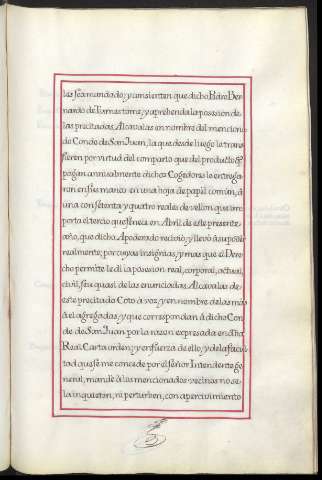 les sea mandado; y consienten que dicho Pedro Ber-
nardo de Formastorre, y aprehenda la posesion de
las precitadas Alcavalas en nombre del menciona-
do Conde de San Juan, la que desde luego le trans-
fieren por virtud del computo que del producto q.e
pagan annualmente dichos Cogedores lo entrega-
ron en sus manos en una hoja de papel comun, á
una con setenta y quatro reales de vellon que im-
porta el tercio que fenece en Abril de este presente
año, que dicho Apoderado recivió y llevó á su poder
realmente; por cuyas insignias, y mas que el Dere-
cho permite le dí la posesion real, corporal, actual,
civil, seu quasi de las enunciadas Alcavalas de
este precitado Coto á voz y en nombre de las mas
á el agregadas, y que correspondan á dicho Con-
de de San Juan por la razon expresada en dha
Real Carta orden; y en fuerza de ello, y de la facul-
tad que se me concede por el Señor Intendente ge-
neral, mandé á los mencionados vecinos no se
la inquieten, ni perturben, con apercivimiento